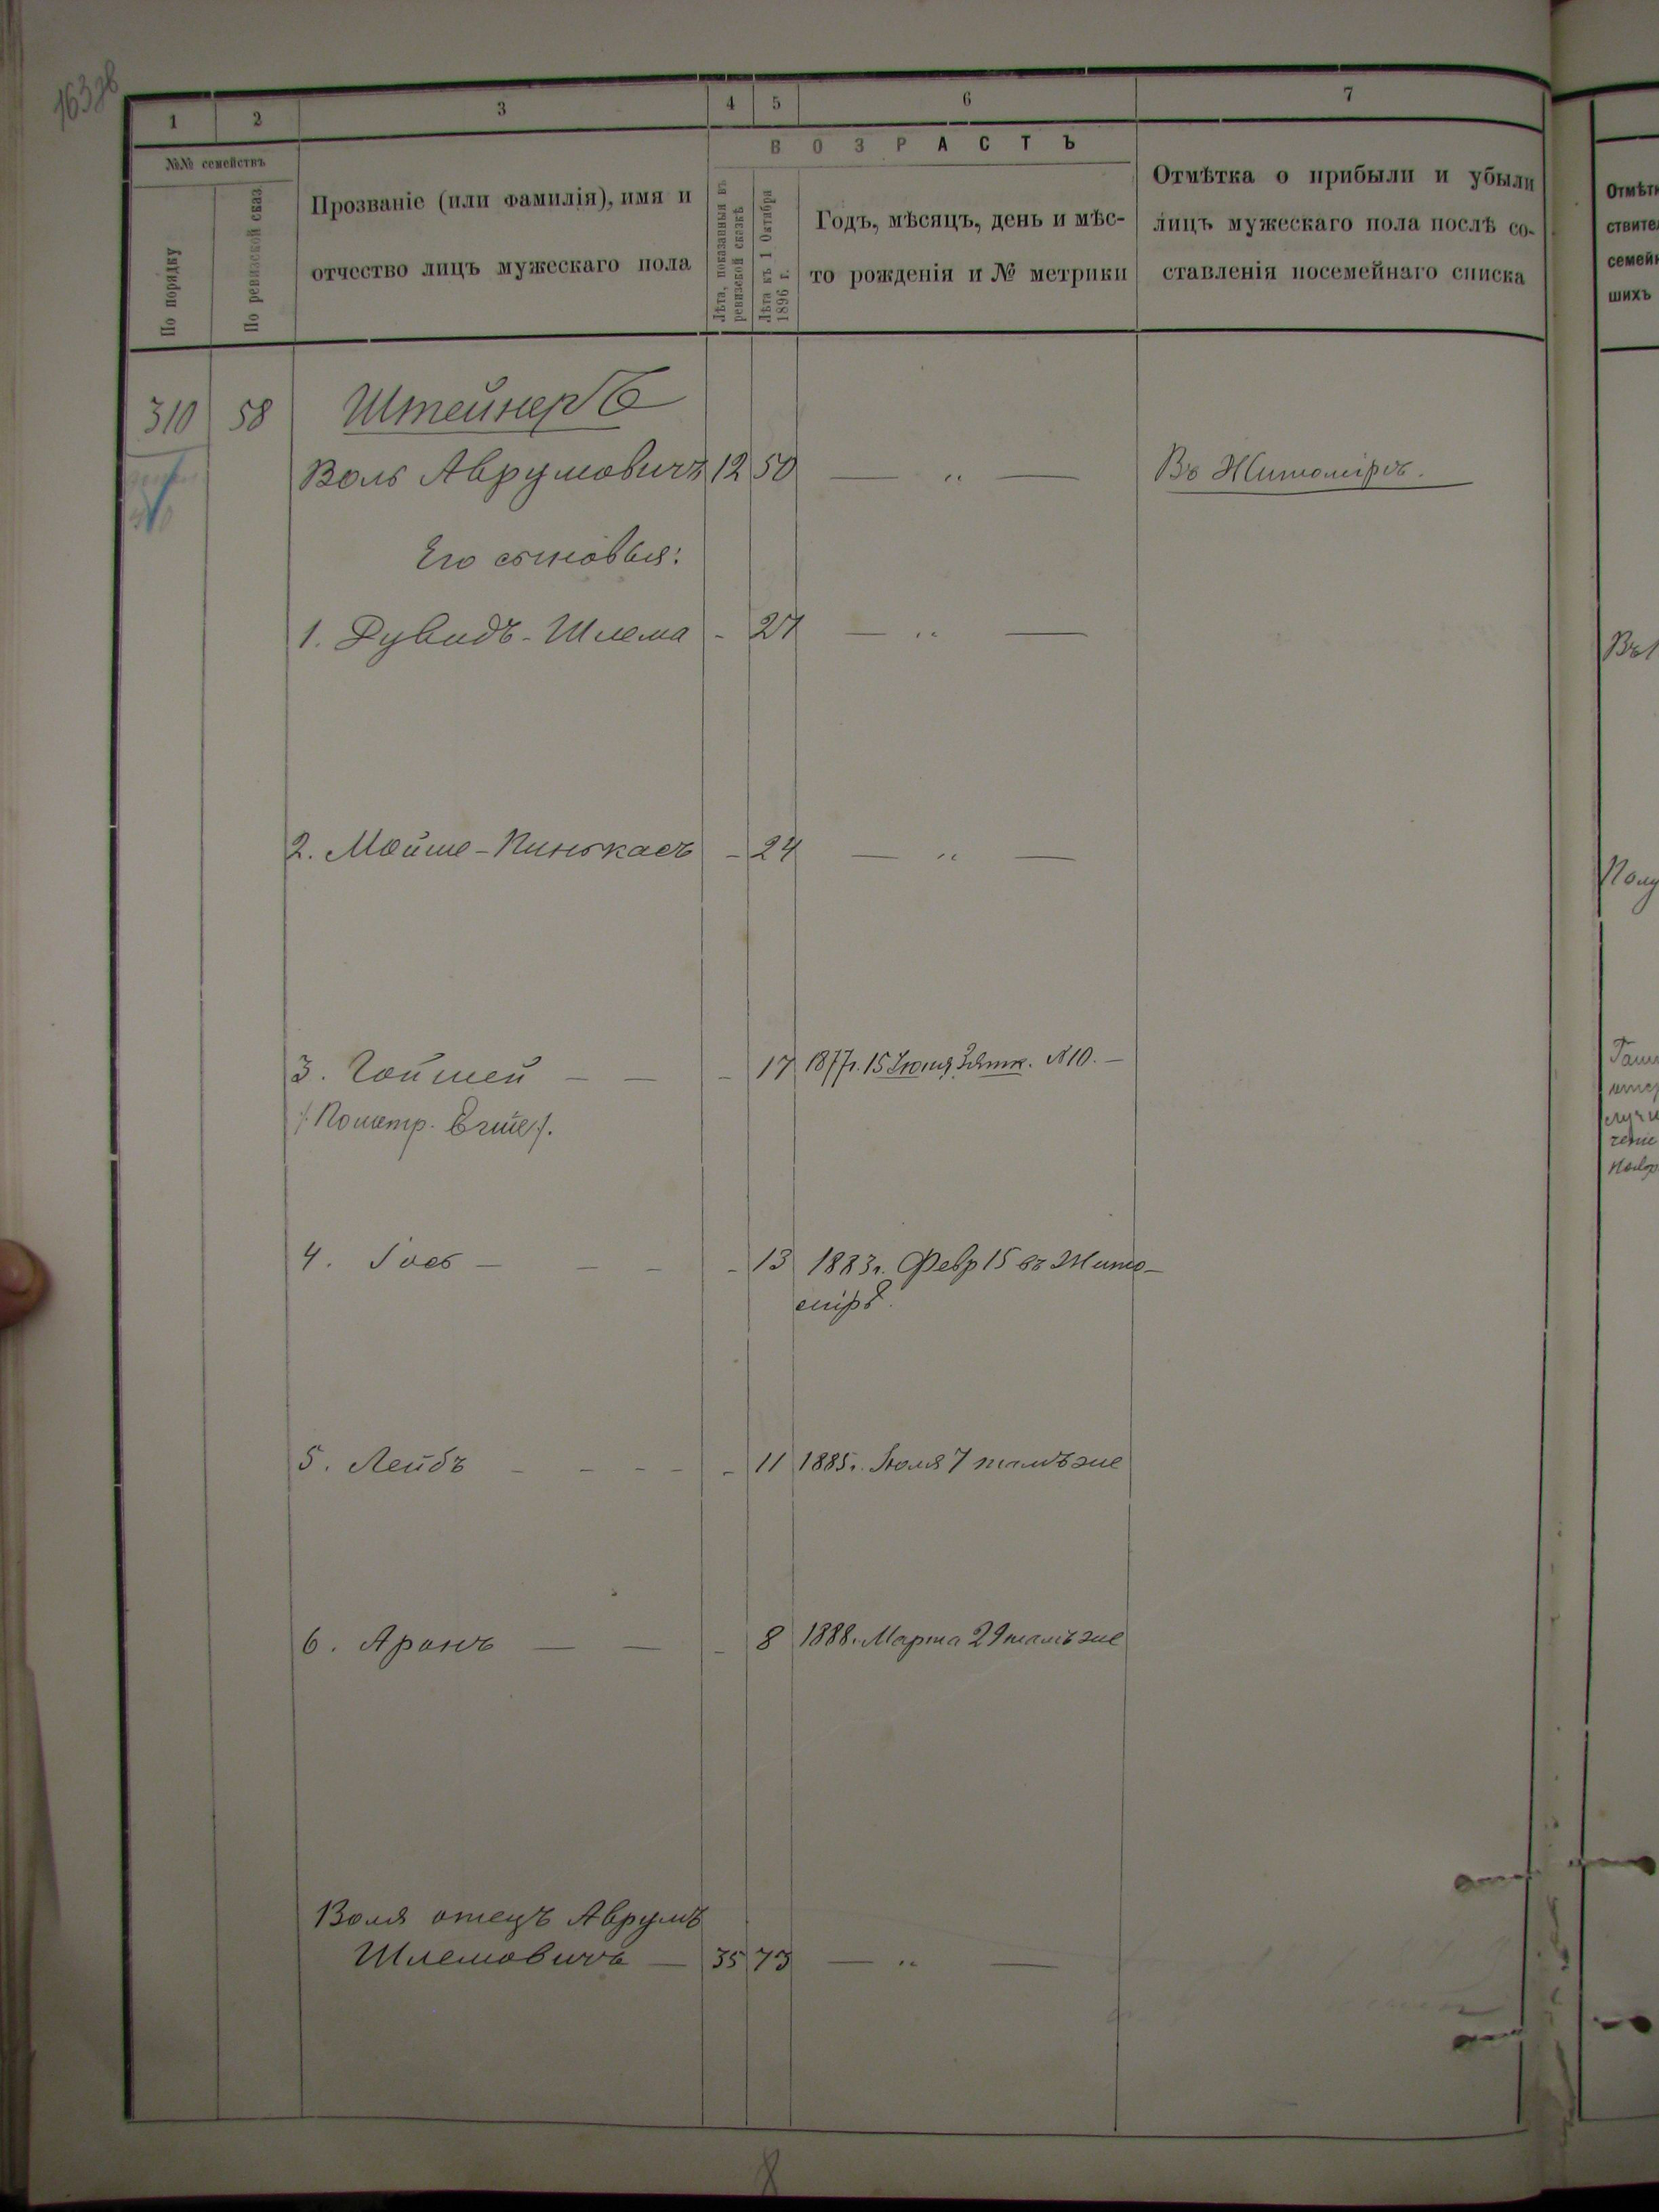 163зв
1 2 3 4 5 6 7
№№ семействъ
По порядку
По ревизской сказ.
Прозваніе (или фамилія), имя и
отчество лицъ мужескаго пола
ВОЗРАСТЪ
Лѣта, показанныя въ
ревизской сказкѣ
Лѣта къ 1 Октября
1896 г.
Годъ, мѣсяцъ, день и мѣс-
то рожденія и № метрики
Отмѣтка о прибыли и убыли
лицъ мужескаго пола послѣ со-
ставленія посемейнаго списка
310 58 Штейнеръ
Воль Аврумовичъ 12 50 — „ — Въ Житомірѣ.
Его сыновья:
1. Дувидъ-Шлема - 27 — „ —
2. Мойше-Пинькасъ - 24 — „ —
3. Гойшей — — - 17 1877г. 15 №10. —
4. Іось — — — - 13 1883г. Февр 15 въ Жито-
мірѣ.
5. Лейбъ - - - - - 11 1885г. Іюля 7 тамъ же
6. Аронъ — — - 8 1888. Марта 29 тамъ же
Воля отецъ Аврумъ
Шлемовичъ — 35 73 — „ —
Отмѣтк
ствител
семейн
шихъ